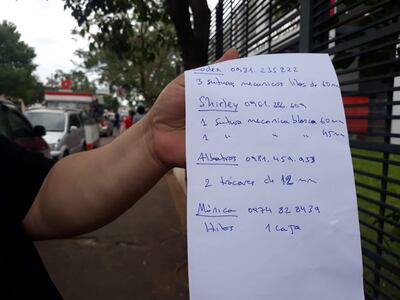 Codex 0981.235222
3 suturas mecanicas lilas de 60mm
Shirley 0961.286.609
1 sutura mecanica blanca 60mm
1 " " " 45mm
Albatros 0981.459.933
2 trócares de 12 mm
Mónica 0974 828439
Hilos 1 caja